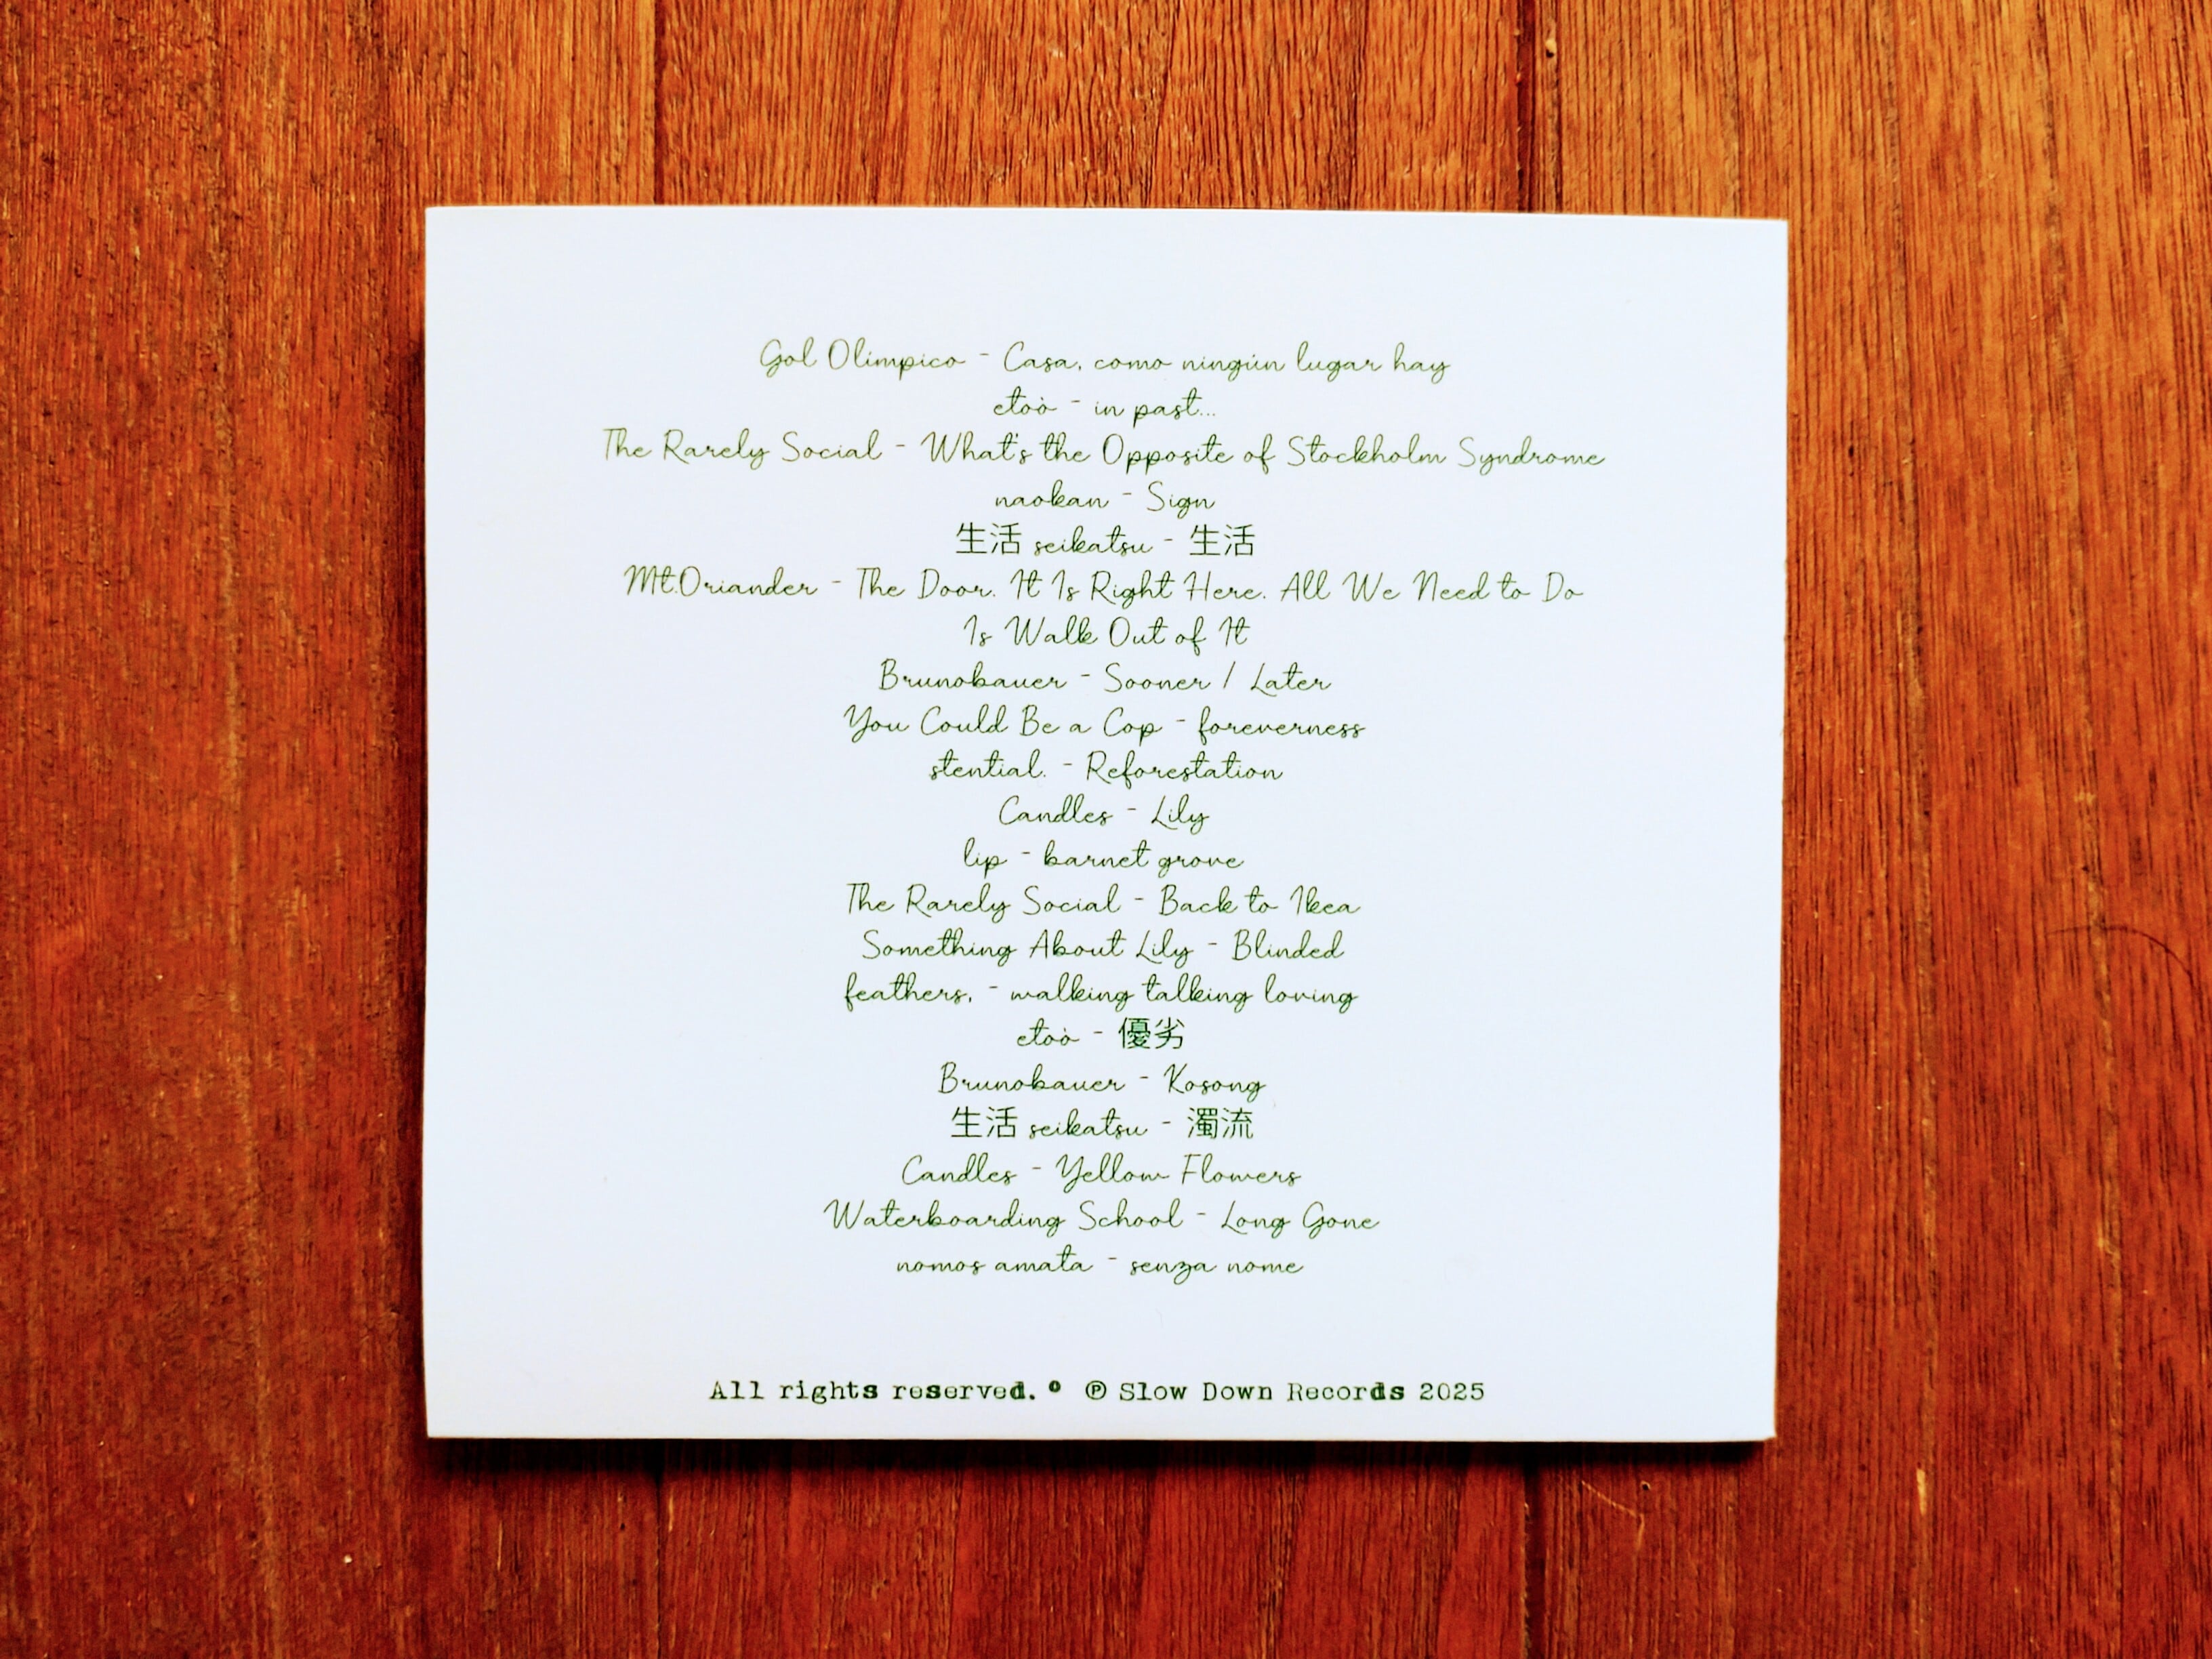 Gol Olímpico - Casa, como ningún lugar hay
etoò - in past...
The Rarely Social - What's the Opposite of Stockholm Syndrome
naokan - Sign
生活 seikatsu - 生活
Mt.Oriander - The Door. It Is Right Here. All We Need to Do
Is Walk Out of It
Brunobauer - Sooner / Later
You Could Be a Cop - foreverness
stential. - Reforestation
Candles - Lily
lip - barnet grove
The Rarely Social - Back to Ikea
Something About Lily - Blinded
feathers, - walking talking loving
etoò - 優劣
Brunobauer - Kosong
生活 seikatsu - 濁流
Candles - Yellow Flowers
Waterboarding School - Long Gone
nomos amata - senza nome
All rights reserved. © ℗ Slow Down Records 2025